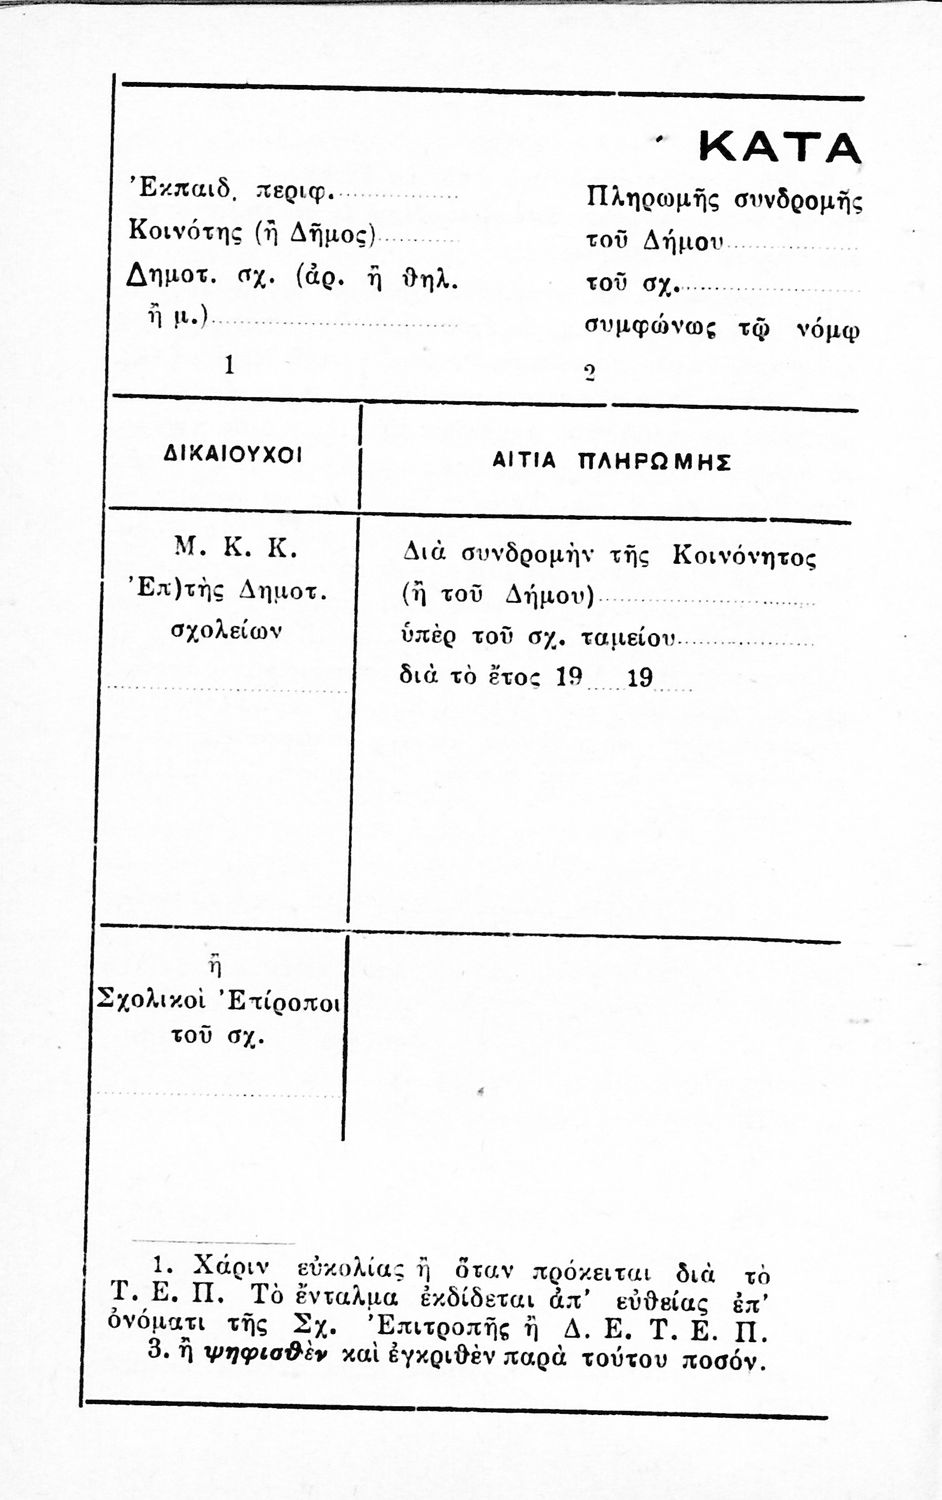 ΚΑΤΑ
Ἐκπαιδ. περιφ.
Κοινότης (ἢ Δῆμος)
Δημοτ. σχ. (ἀρ. ἢ θηλ.
ἢ μ.)
1
Πληρωμῆς συνδρομῆς
τοῦ Δήμου
τοῦ σχ.
συμφώνως τῷ νόμῳ
2
ΔΙΚΑΙΟΥΧΟΙ
ΑΙΤΙΑ ΠΛΗΡΩΜΗΣ
Μ. Κ. Κ.
Ἐπ)τὴς Δημοτ.
σχολείων
Διὰ συνδρομὴν τῆς Κοινόνητος
(ἢ τοῦ Δήμου)
ὑπὲρ τοῦ σχ. ταμείου
διὰ τὸ ἔτος 19 19
ἢ
Σχολικοὶ Ἐπίροποι
τοῦ σχ.
1. Χάριν εὐκολίας ἢ ὅταν πρόκειται διὰ τὸ
Τ. Ε. Π. Τὸ ἔνταλμα ἐκδίδεται ἀπ’ εὐθείας ἐπ’
ὀνόματι τῆς Σχ. Ἐπιτροπῆς ἢ Δ. Ε. Τ. Ε. Π.
3. ἢ ψηφισθὲν καὶ ἐγκριθὲν παρὰ τούτου ποσόν.